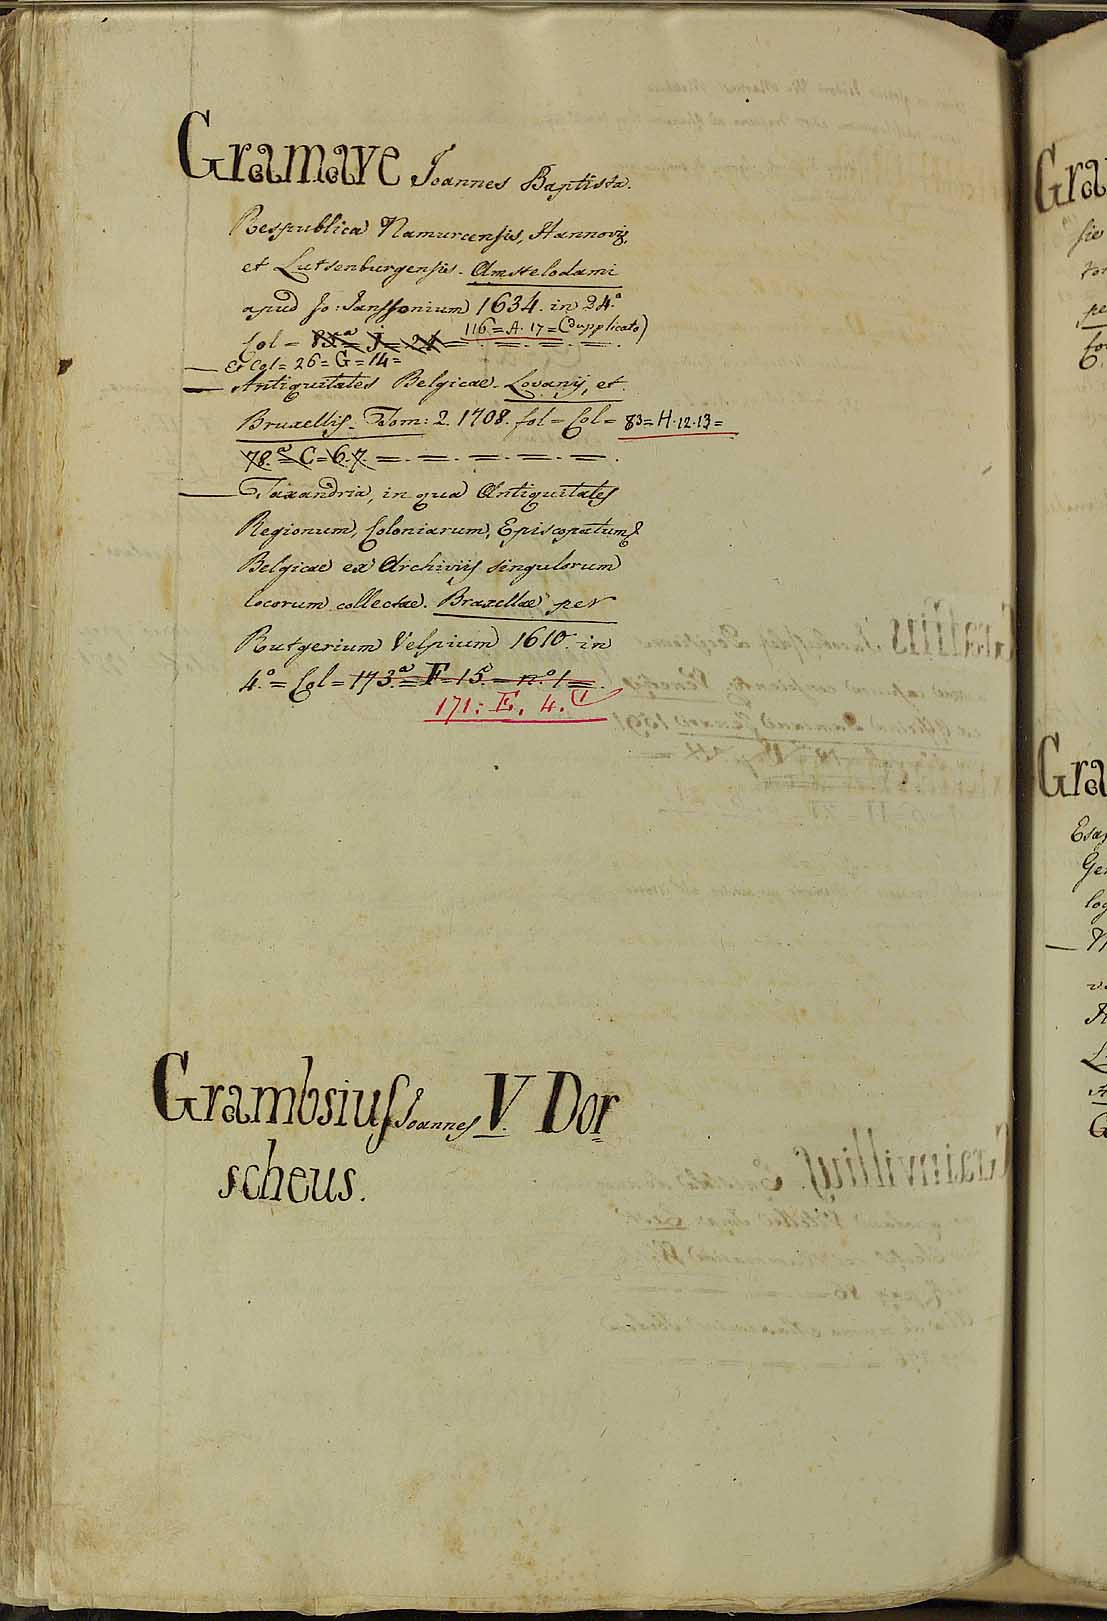 Gramaye Joannes Baptista.
Respublica Namurcensis, Hannoviæ,
et Lutsenburgensis. Amstelodami
apud Jo: Janssonium 1634. in 24.º
Col = 116 = A. 17 = (Dupplicato)
Et Col = 26 = G = 14 =
— Antiquitates Belgicae. Lovanij, et
Bruxellis. Tom: 2. 1708. fol = Col = 83 = H. 12. 13 =
78.ª = C = 6. 7. = . = . = . = . = .
— Taxandria, in qua Antiquitates
Regionum, Coloniarum, Episcopatum
Belgicae ex Archiviis singulorum
locorum collectae. Bruxellae per
Rutgerium Velpium 1610. in
4.º = Col = 173.ª = F = 15. = n.º 1 = .
171: E. 4.
Grambsius Joannes V. Dor=
scheus.
Gra
Gra